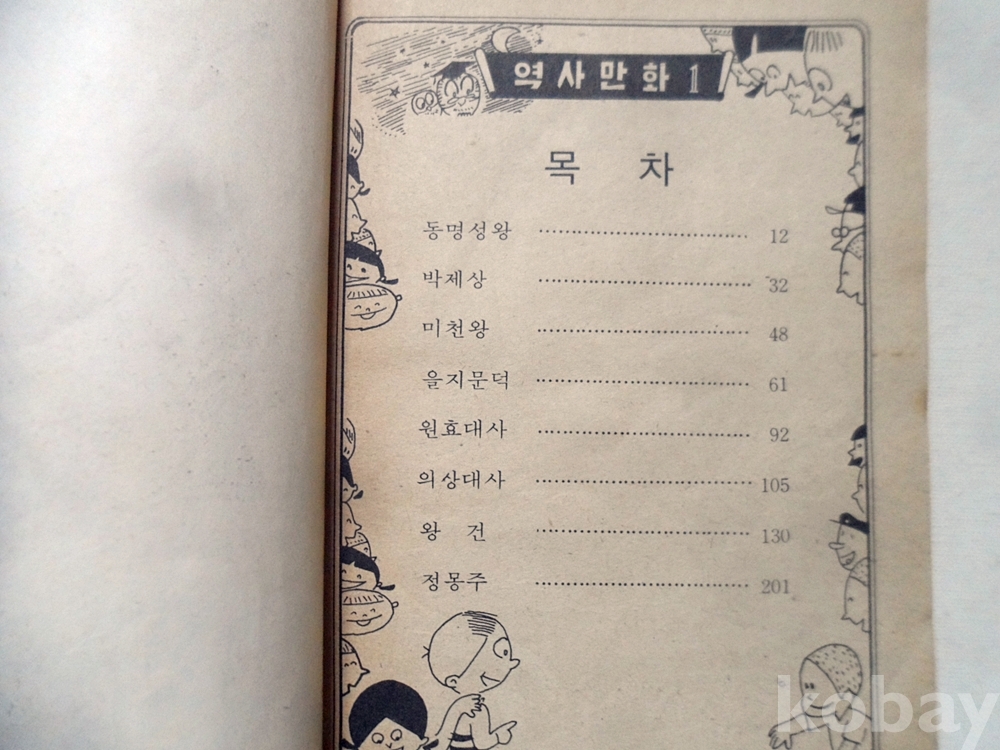 역사만화 1
목 차
동명성왕 ································ 12
박제상 ································ 32
미천왕 ································ 48
을지문덕 ································ 61
원효대사 ································ 92
의상대사 ································ 105
왕 건 ································ 130
정몽주 ································ 201
kobay